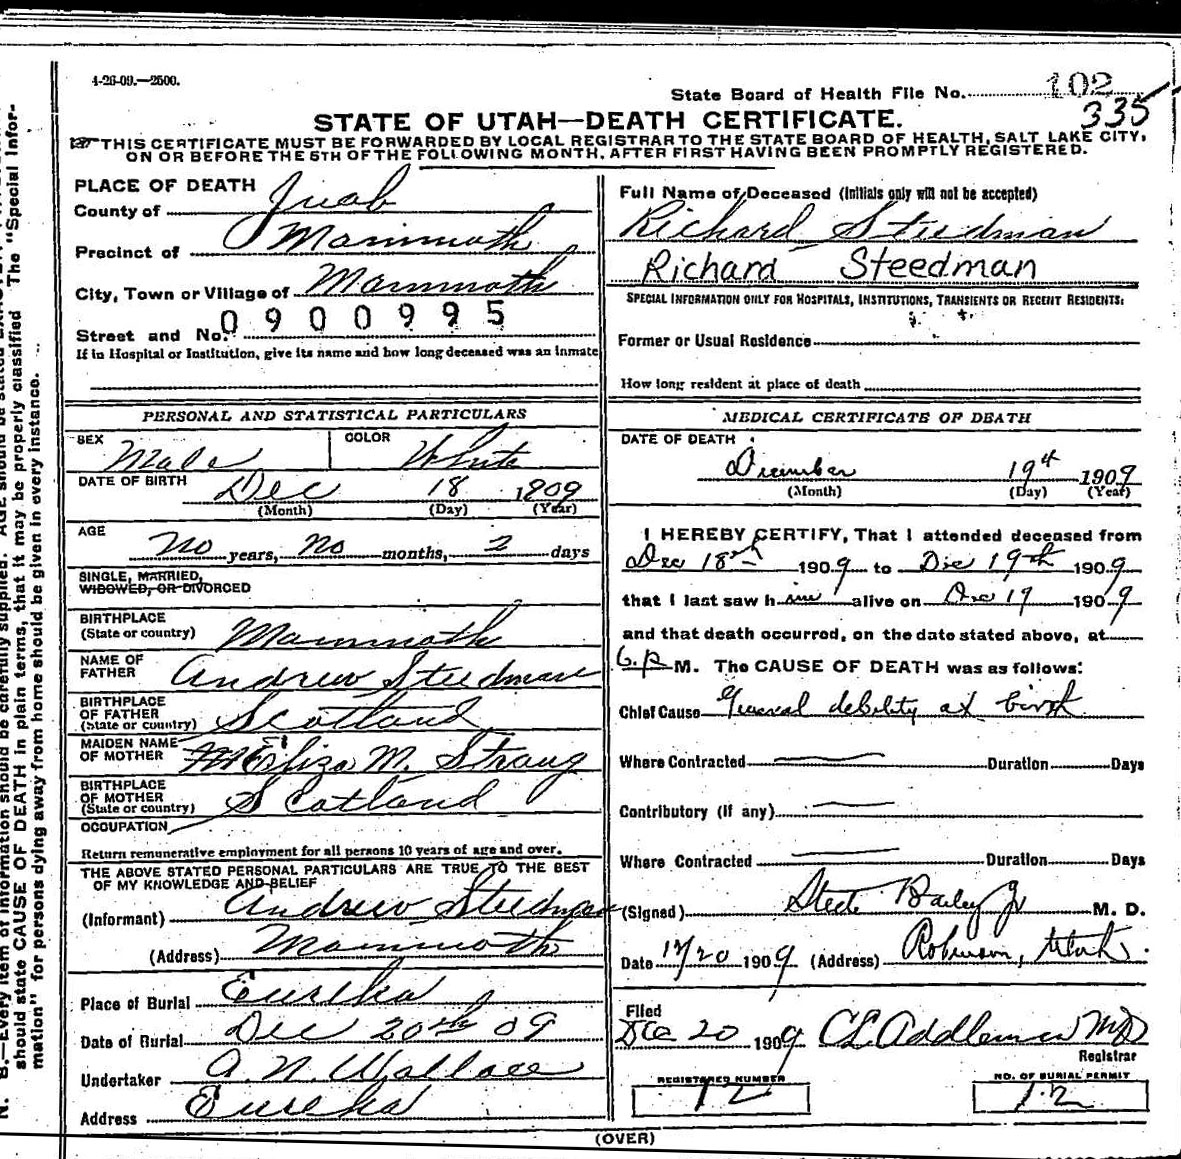 4-26-09.—2500.
State Board of Health File No. 102
335
STATE OF UTAH—DEATH CERTIFICATE.
THIS CERTIFICATE MUST BE FORWARDED BY LOCAL REGISTRAR TO THE STATE BOARD OF HEALTH, SALT LAKE CITY,
ON OR BEFORE THE 5TH OF THE FOLLOWING MONTH, AFTER FIRST HAVING BEEN PROMPTLY REGISTERED.
PLACE OF DEATH
County of Juab
Precinct of Mammoth
City, Town or Village of Mammoth
Street and No. 0900995
If in Hospital or Institution, give its name and how long deceased was an inmate
Full Name of Deceased (Initials only will not be accepted)
Richard Steedman
Richard Steedman
SPECIAL INFORMATION ONLY FOR HOSPITALS, INSTITUTIONS, TRANSIENTS OR RECENT RESIDENTS:
Former or Usual Residence
How long resident at place of death
PERSONAL AND STATISTICAL PARTICULARS
SEX Male COLOR White
DATE OF BIRTH Dec 18 1909
(Month) (Day) (Year)
AGE
No years, No months, 2 days
SINGLE, MARRIED,
WIDOWED, OR DIVORCED
BIRTHPLACE
(State or country) Mammoth
NAME OF
FATHER Andrew Steedman
BIRTHPLACE
OF FATHER
(State or country) Scotland
MAIDEN NAME
OF MOTHER Eliza M. Strang
BIRTHPLACE
OF MOTHER
(State or country) Scotland
OCCUPATION
Return remunerative employment for all persons 10 years of age and over.
THE ABOVE STATED PERSONAL PARTICULARS ARE TRUE TO THE BEST
OF MY KNOWLEDGE AND BELIEF
(Informant) Andrew Steedman
(Address) Mammoth
Place of Burial Eureka
Date of Burial Dec 20th 09
Undertaker A. N. Wallace
Address Eureka
MEDICAL CERTIFICATE OF DEATH
DATE OF DEATH
December 19th 1909
(Month) (Day) (Year)
I HEREBY CERTIFY, That I attended deceased from
Dec 18th 1909 to Dec 19th 1909
that I last saw him alive on Dec 19 1909
and that death occurred, on the date stated above, at
6.P. M. The CAUSE OF DEATH was as follows:
Chief Cause General debility at birth
Where Contracted Duration Days
Contributory (if any)
Where Contracted Duration Days
(Signed) Steele Bailey Jr M. D.
Date 12/20 1909 (Address) Robinson, Utah.
Filed
Dec 20 1909 CE Addleman MD
Registrar
REGISTERED NUMBER
12
NO. OF BURIAL PERMIT
12
(OVER)
N. B.—Every item of information should be carefully supplied. AGE should be stated
should state CAUSE OF DEATH in plain terms, that it may be properly classified The "Special Infor-
mation" for persons dying away from home should be given in every instance.